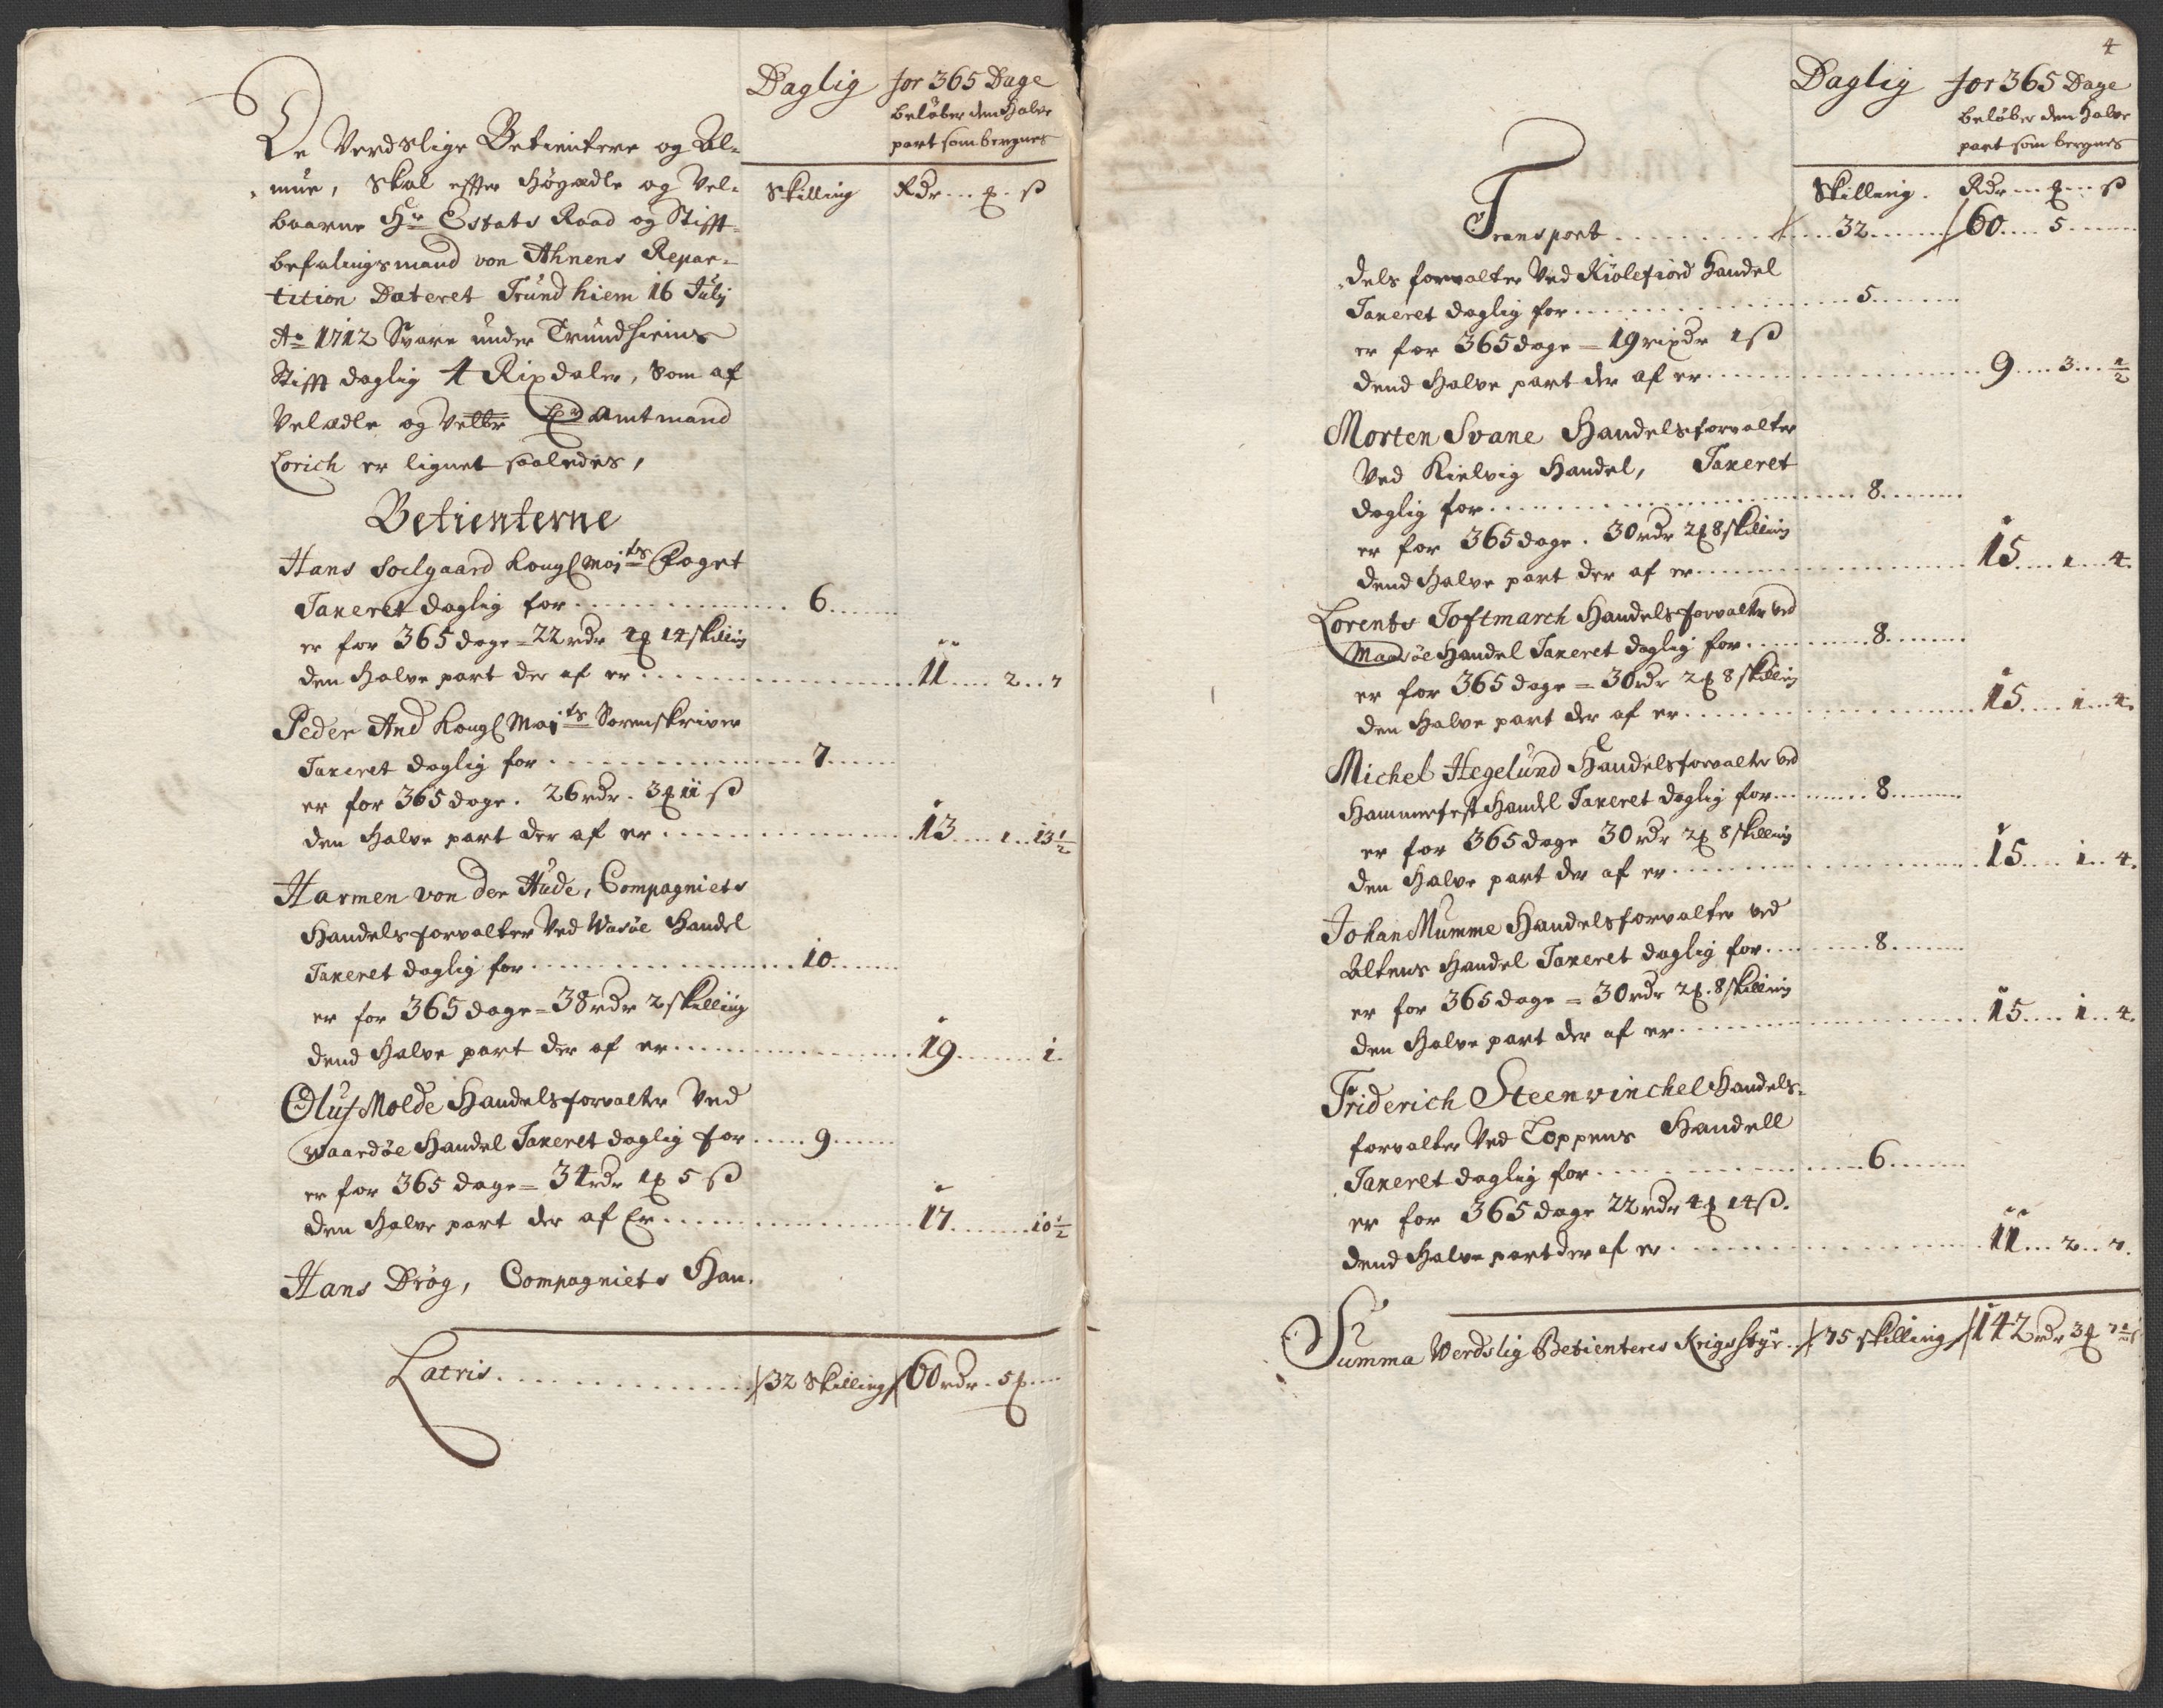 Daglig for 365 Dage
beløber den Halve
part som beregnes
De Verdslige Betientere og Al-
mue, Skal effter Høgædle og Vel-
baarne Hr Estats Raad og Stifft-
befalingsmand von Ahnens Repar-
tition Dateret Trundhiem 16 Julij
Ao 1712 Svare under Trundhiems
Stifft daglig 4 Rixdaler, Som af
Velædle og Velbr Hr Amtmand
Lorich er lignet saaledes,
Skilling Rdr ... ℔ . ß
Betienterne
Hans Soelgaard Kongl Maits Foget
Taxeret daglig for .......... 6 ....
er for 365 dage = 22 rdr 4 ℔ 14 skilling
den Halve part der af er .......... 11 .... 2 .. 7
Peder And Kongl Maits Sorenskriver
Taxeret daglig for .......... 7 ....
er for 365 dage . 26 rdr . 3 ℔ 11 ß
den Halve part der af er .......... 13 .... 1 .. 13½
Harmen von der Hude, Compagniets
Handelsforvalter Ved Wadsøe Handel
Taxeret daglig for .......... 10 ....
er for 365 dage = 38 rdr 2 skilling
dend Halve part der af er .......... 19 ........ 1.
Oluf Molde Handelsforvalter Ved
Waardøe Handel Taxeret daglig for ..... 9 .....
er for 365 dage = 34 rdr 1 ℔ 5 ß
den Halve part der af Er .......... 17 ........ 10½
Hans Drøg, Compagniets Han-
Latris .......... 32 Skilling 60 rdr . 5 ℔ ...
4
Daglig for 365 Dage
beløber den Halve
part som beregnes
Skilling . Rdr ... ℔ ... ß
Transport .......... 32 ..... 60 .... 5 .....
-dels forvalter Ved Kiølefiord Handel
Taxeret daglig for .......... 5 .....
er for 365 dage = 19 rixdr 1 ß
dend Halve part der af er .......... 9 .... 3 ... ½
Morten Svane Handelsforvalter
Ved Kielvig Handel, Taxeret
daglig for .......... 8 .....
er for 365 dage . 30 rdr 2 ℔ 8 skilling
dend Halve part der af er .......... 15 .... 1 ... 4.
Lorents Toftmarch Handelsforvalter ved
Maasøe Handel Taxeret daglig for .......... 8 .....
er for 365 dage = 30 rdr 2 ℔ 8 skilling
den Halve part der af er .......... 15 .... 1 .. 4.
Michel Hegelund Handelsforvalter ved
Hammerfest Handel Taxeret daglig for .......... 8 .....
er for 365 dage 30 rdr 2 ℔ 8 skilling
den Halve part der af er .......... 15 .... 1 .. 4.
Johan Mumme Handelsforvalter ved
Altens Handel Taxeret daglig for .......... 8 .....
er for 365 dage = 30 rdr 2 ℔ . 8 skilling
den Halve part der af er .......... 15 .... 1 .. 4.
Friderich Steenwinchel Handels-
forvalter Ved Loppens Handell
Taxeret daglig for .......... 6 .....
er for 365 dage 22 rdr 4 ℔ 14 ß.
dend Halve part der af er .......... 11 ... 2 .. 7.
Summa Verdslig Betienteres Krigsstyr .. 75 skilling 142 rdr 3 ℔ 7½ ß